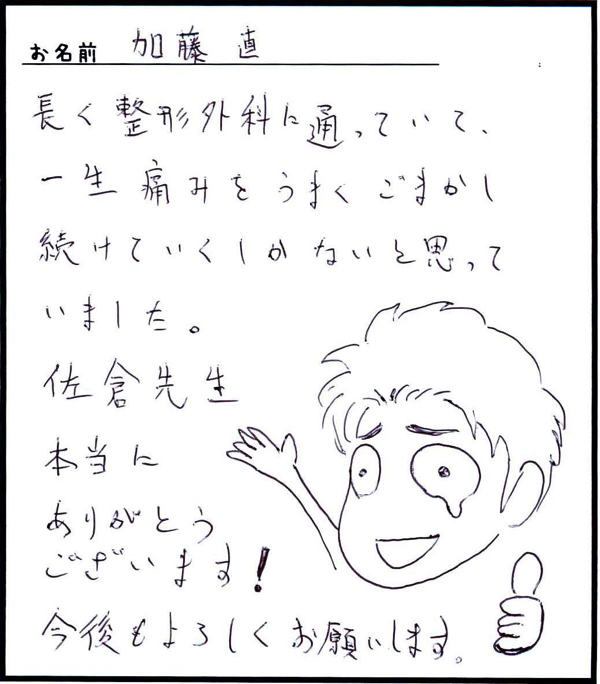 お名前 加藤 直
長く整形外科に通っていて、
一生痛みをうまくごまかし
続けていくしかないと思って
いました。
佐倉先生
本当に
ありがとう
ございます!
今後もよろしくお願いします。